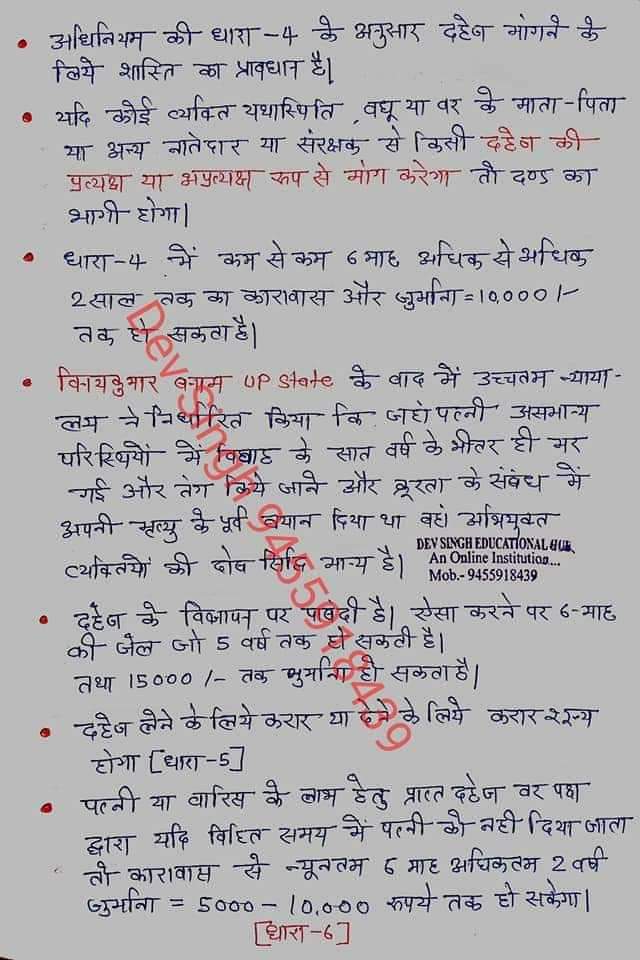 • अधिनियम की धारा-4 के अनुसार दहेज मांगने के
लिये शास्ति का प्रावधान है|
• यदि कोई व्यक्ति यथास्थिति, वधू या वर के माता-पिता
या अन्य नातेदार या संरक्षक से किसी दहेज की
प्रत्यक्ष या अप्रत्यक्ष रूप से मांग करेगा तो दण्ड का
भागी होगा|
• धारा-4 में कम से कम 6 माह अधिक से अधिक
2 साल तक का कारावास और जुर्माना=10,000/-
तक हो सकता है|
• विनयकुमार बनाम UP State के वाद में उच्चतम न्याया-
लय ने निर्धारित किया कि जहां पत्नी असमान्य
परिस्थियों में विवाह के सात वर्ष के भीतर ही मर
गई और तंग किये जाने और क्रूरता के संबंध में
अपनी मृत्यु के पूर्व बयान दिया था वहां अभियुक्त
व्यक्तियों की दोष सिद्धि मान्य है|
DEV SINGH EDUCATIONAL HUB,
An Online Institution...
Mob.- 9455918439
• दहेज के विज्ञापन पर पाबंदी है| ऐसा करने पर 6-माह
की जेल जो 5 वर्ष तक हो सकती है|
तथा 15000/- तक जुर्माना हो सकता है|
• दहेज लेने के लिये करार या देने के लिये करार शून्य
होगा [धारा-5]
• पत्नी या वारिस के लाभ हेतु प्राप्त दहेज वर पक्ष
द्वारा यदि विहित समय में पत्नी को नही दिया जाता
तो कारावास से न्यूनतम 6 माह अधिकतम 2 वर्ष
जुर्माना = 5000-10,000 रूपये तक हो सकेगा|
[धारा-6]
Dev Singh 9455918439